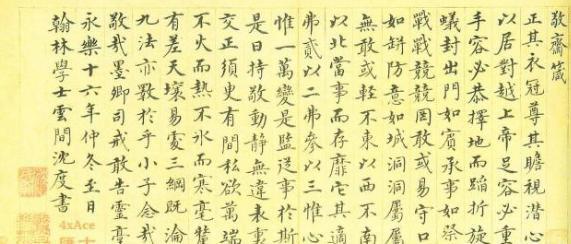 敬齋箴
正其衣冠尊其瞻視潛心
以居對越上帝足容必重
手容必恭擇地而蹈折旋
蟻封出門如賓承事如祭
戰戰兢兢罔敢或易守口
如缾防意如城洞洞屬屬
無敢或輕不東以西不南
以北當事而存靡它其適
弗貳以二弗參以三惟心
惟一萬變是監從事於斯
是曰持敬動靜無違表裏
交正須臾有間私欲萬端
不火而熱不冰而寒毫釐
有差天壤易處三綱既淪
九法亦斁於乎小子念哉
敬哉墨卿司戒敢告靈臺
永樂十六年仲冬至日
翰林學士雲間沈度書
4xAce